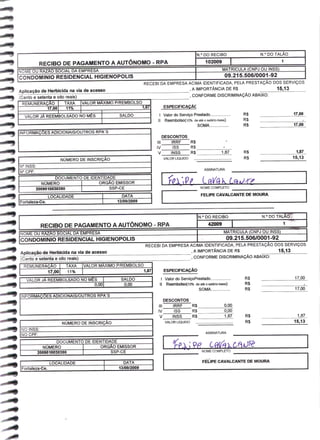 Nº DO RECIBO Nº DO TALÃO
RECIBO DE PAGAMENTO A AUTÔNOMO - RPA 102009 1
NOME OU RAZÃO SOCIAL DA EMPRESA MATRICULA (CNPJ OU INSS)
CONDOMINIO RESIDENCIAL HIGIENOPOLIS 09.215.506/0001-92
RECEBI DA EMPRESA ACIMA IDENTIFICADA, PELA PRESTAÇÃO DOS SERVIÇOS
Aplicação de Herbicida na via de acesso , A IMPORTÂNCIA DE R$ 15,13
(Cento e setenta e oito reais) , CONFORME DISCRIMINAÇÃO ABAIXO:
REMUNERAÇÃO TAXA VALOR MÁXIMO P/REMBOLSO
17,00 11% 1,87 ESPECIFICAÇÃO
VALOR JÁ REEMBOLSADO NO MÊS SALDO I Valor do Serviço Prestado R$ 17,00
II Reembolso R$
SOMA R$ 17,00
INFORMAÇÕES ADICIONAIS/OUTROS RPA`S
DESCONTOS
III IRRF R$
IV ISS R$
V INSS R$ 1,87 R$ 1,87
NÚMERO DE INSCRIÇÃO VALOR LÍQUIDO R$ 15,13
Nº INSS:
Nº CPF: ASSINATURA
DOCUMENTO DE IDENTIDADE
NÚMERO ORGÃO EMISSOR
SSP-CE NOME COMPLETO
LOCALIDADE DATA FELIPE CAVALCANTE DE MOURA
Fortaleza-Ce. 12/09/2009
Nº DO RECIBO Nº DO TALÃO
RECIBO DE PAGAMENTO A AUTÔNOMO - RPA 42009 1
NOME OU RAZÃO SOCIAL DA EMPRESA MATRICULA (CNPJ OU INSS)
CONDOMINIO RESIDENCIAL HIGIENOPOLIS 09.215.506/0001-92
RECEBI DA EMPRESA ACIMA IDENTIFICADA, PELA PRESTAÇÃO DOS SERVIÇOS
Aplicação de Herbicida na via de acesso , A IMPORTÂNCIA DE R$ 15,13
(Cento e setenta e oito reais) , CONFORME DISCRIMINAÇÃO ABAIXO:
REMUNERAÇÃO TAXA VALOR MÁXIMO P/REMBOLSO
17,00 11% 1,87 ESPECIFICAÇÃO
VALOR JÁ REEMBOLSADO NO MÊS SALDO I Valor do Serviço Prestado R$ 17,00
0,00 0,00 II Reembolso R$
SOMA R$ 17,00
INFORMAÇÕES ADICIONAIS/OUTROS RPA`S
DESCONTOS
III IRRF R$ 0,00
IV ISS R$ 0,00
V INSS R$ 1,87 R$ 1,87
NÚMERO DE INSCRIÇÃO VALOR LÍQUIDO R$ 15,13
NO INSS:
NO CPF: ASSINATURA
DOCUMENTO DE IDENTIDADE
NÚMERO ORGÃO EMISSOR
SSP-CE NOME COMPLETO
LOCALIDADE DATA FELIPE CAVALCANTE DE MOURA
Fortaleza-Ce. 12/09/2009